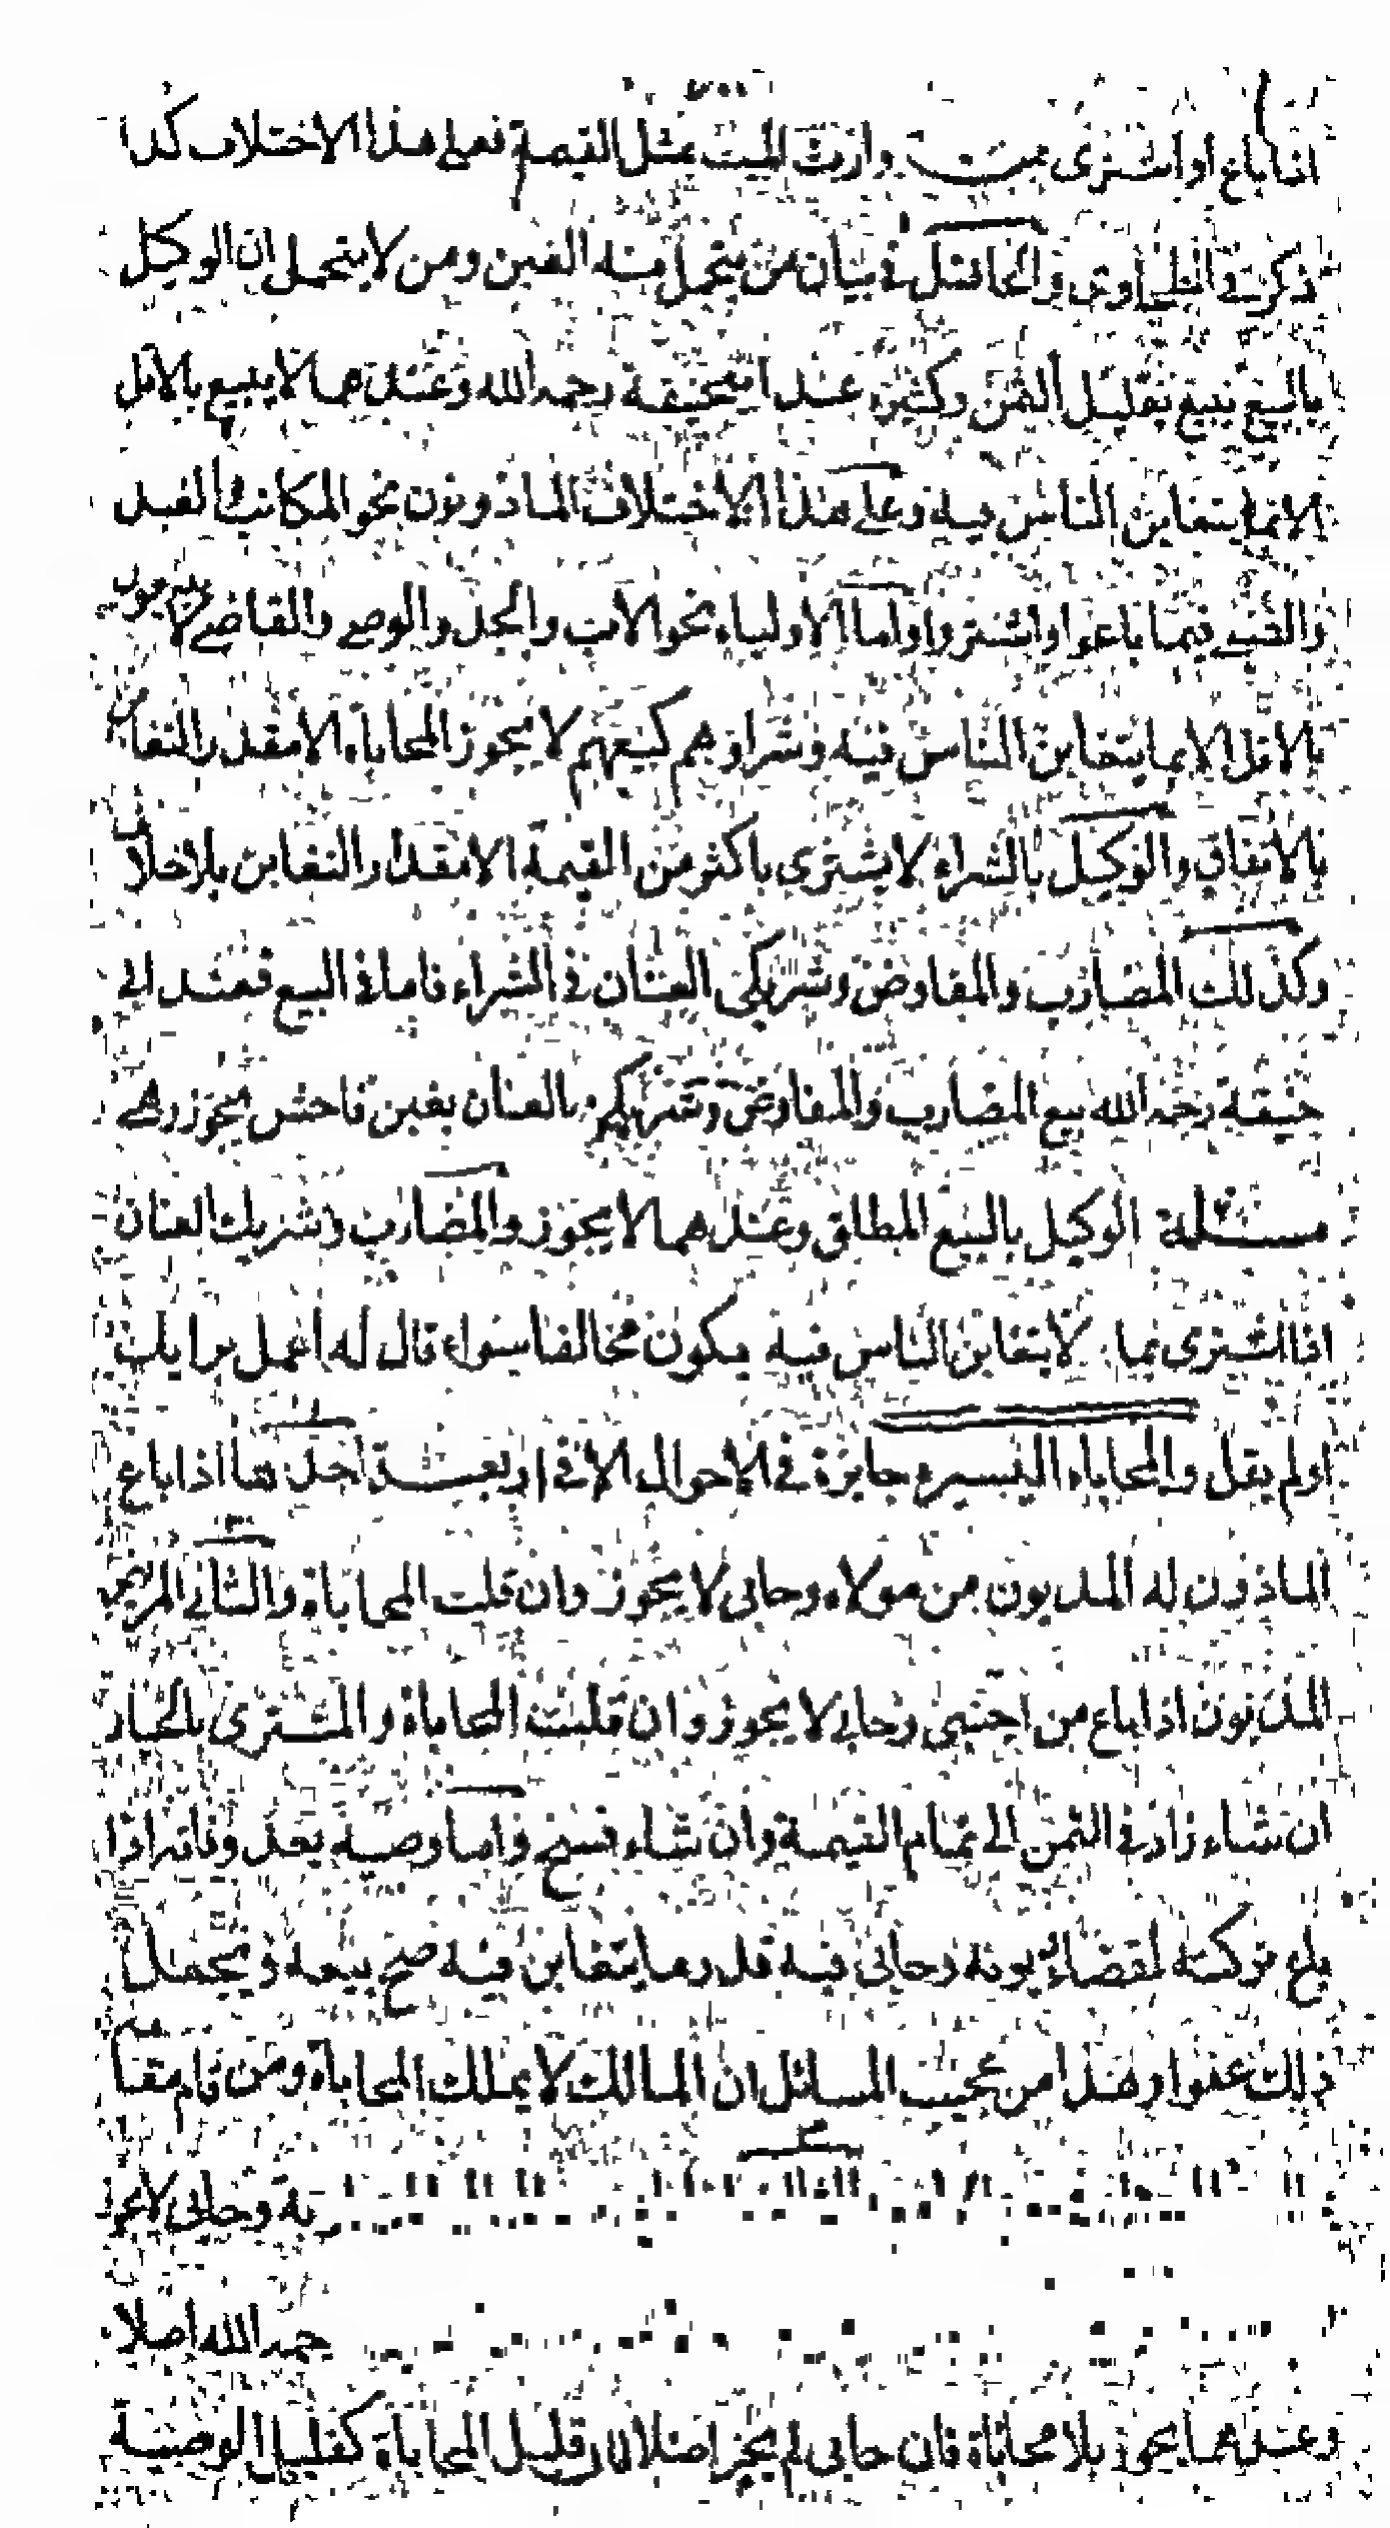 اذا باع او اشترى ممن وارث الميت بمثل القيمة فعلى هذا الاختلاف كذا
ذكره في الطحاوي في بيان من يتحمل منه الغبن ومن لا يتحمل ان الوكيل
بالبيع يبيع بقليل الثمن وكثيره عند ابيحنيفة رحمه الله وعندهما لا يبيع بالاقل
الا بما يتغابن الناس فيه وعلى هذا الاختلاف الماذونون نحو المكاتب والعبد
والصبي فيما باعوا واشتروا واما الاولياء نحو الاب والجد والوصي والقاضي
بالاقل الا بما يتغابن الناس فيه وشراؤهم كبيعهم لا يجوز المحاباة الا مقدار التغابن
بالاتفاق والوكيل بالشراء لا يشترى باكثر من القيمة الا مقدار التغابن بلا خلاف
وكذلك المضارب والمفاوض وشريكى العنان في الشراء فاما في البيع فعند ابي
حنيفة رحمه الله بيع المضارب والمفاوض وشريكي العنان بغبن فاحش يجوز وهي
مسئلة الوكيل بالبيع المطلق وعندهما لا يجوز والمضارب وشريك العنان
اذا اشترى بما لا يتغابن الناس فيه يكون مخالفا سواء قال له اعمل برايك
او لم يقل والمحاباة اليسيرة جايزة في الاحوال الا في اربعة احدها اذا باع
الماذون له المديون من مولاه وحابى لا يجوز وان قلت المحاباة والثاني المريض
المديون اذا باع من اجنبي وحابى لا يجوز وان قلت المحاباة والمشترى بالخيار
ان شاء زاد في الثمن الى تمام القيمة وان شاء فسخ واما وصيه بعد وفاته اذا
باع تركته لقضاء ديونه وحابى فيه قدر ما يتغابن فيه صح بيعه ويجعل
ذلك عفوا وهذا من عجيب المسائل ان المالك لا يملك المحاباة ومن قام مقامه
به وحابى لا يجوز
حمه الله اصلا
وعندهما يجوز بلا محاباة فان حابى لم يجز اصلا لان قليل المحاباة كقليل الوصية